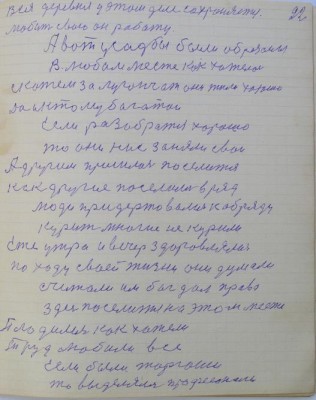 вся деревня у этом деле сохраняету. 22
любить свою он работу.
А вот усадьбы были образны
В любом месте как хотели
скажем за лугом они жили хорошо
за кто богатой
Если разобратся хорошо
то они нас заняли свои
А другим пришлая поселится
как другие поселили в ряд
люди придерживался к обряду
курит многие не курили
Ете утра и вечер здоровлялися
по ходу своей жизни они думали
считали им бог дал право
здес поселится на этом месте
Плодился как хотели
Труд любили все
Если были
то выделялся